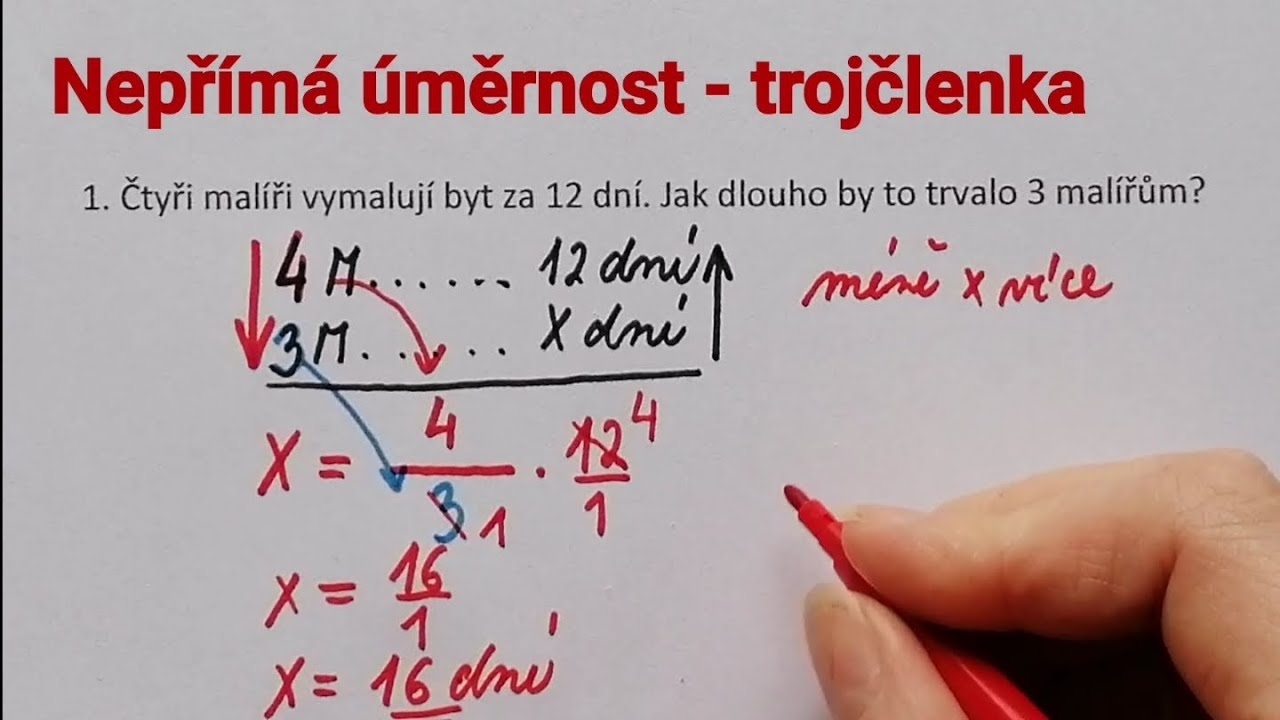 Nepřímá úměrnost - trojčlenka
1. Čtyři malíři vymalují byt za 12 dní. Jak dlouho by to trvalo 3 malířům?
4 M....... 12 dní
méně x více
3 M...... X dní
X = 4/3 1 . 12 4/1
X = 16/1
X = 16 dní